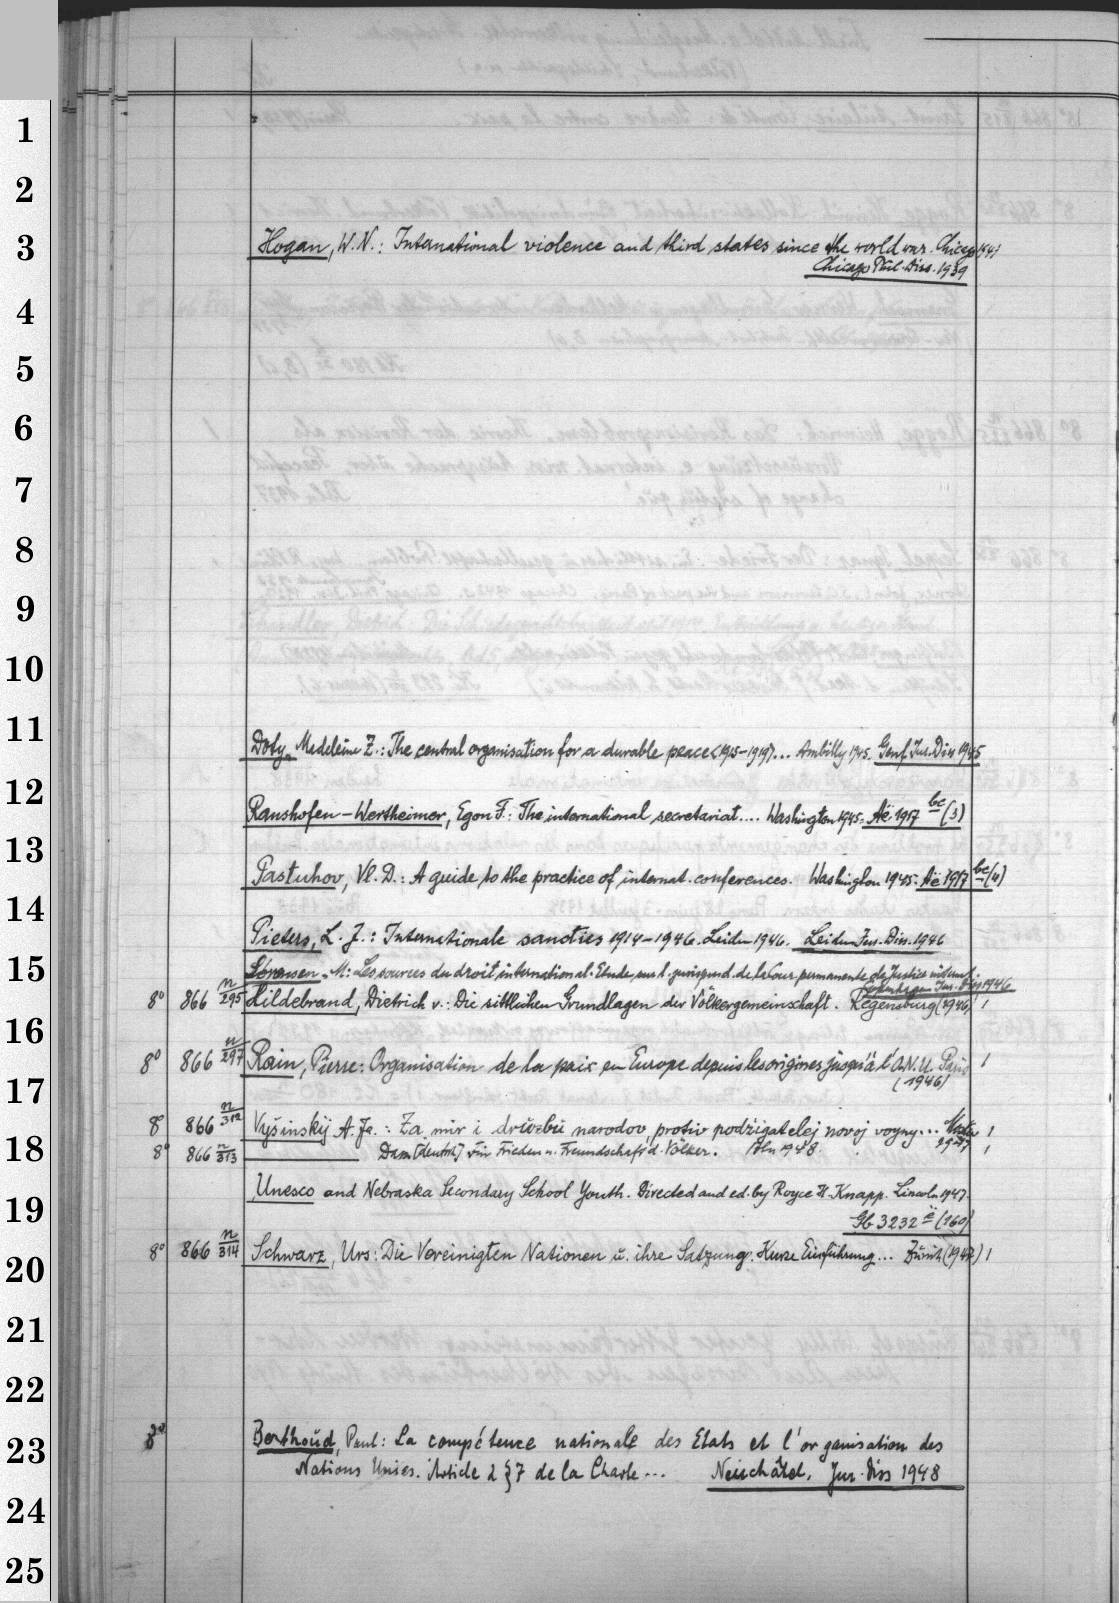 1
2
3
4
5
6
7
8
9
10
11
12
13
14
15
16
17
18
19
20
21
22
23
24
25
Hogan, W.N.: International violence and third states since the world war. Chicago 1941
Chicago Phil. Diss. 1939
Doty, Madeleine Z.: The central organisation for a durable peace <1915-1919>... Ambilly 1945. Genf. Jur. Diss 1945
Ranshofen-Wertheimer, Egon F.: The international secretariat.... Washington 1945. Aë 1917 bc (3)
Pastuhov, Vl. D.: A guide to the practice of internat. conferences. Washington 1945. Aë 1917 bc (4)
Pieters, L. J.: Internationale sancties 1914-1946. Leiden 1946. Leiden Jur. Diss. 1946
Sørensen, M: Les sources du droit international. Etude sur l. jurisprud. de la Cour permanente de Justice internat.
Jur. Diss 1946
8° 866 n/295 Hildebrand, Dietrich v.: Die sittlichen Grundlagen der Völkergemeinschaft. Regensburg (1946) 1
8° 866 n/297 Rain, Pierre: Organisation de la paix en Europe depuis les origines jusqu'à l'O.N.U. Paris 1
(1946)
8° 866 n/312 Vyšinskij A. Ja.: Za mir i družbu narodov, protiv podžigatelej novoj vojny... 1
8° 866 n/313 Dass. [deutsch] Für Frieden u. Freundschaft d. Völker. Bln 1948. 1
Unesco and Nebraska Secondary School Youth. Directed and ed. by Royce H. Knapp. Lincoln 1947.
Gb 3232 ë (160)
8° 866 n/314 Schwarz, Urs: Die Vereinigten Nationen u. ihre Satzung. Kurze Einführung... Zürich (1947) 1
8° Berthoud, Paul: La compétence nationale des Etats et l'organisation des
Nations Unies. Article 2 § 7 de la Charte... Neuchâtel, Jur. Diss 1948